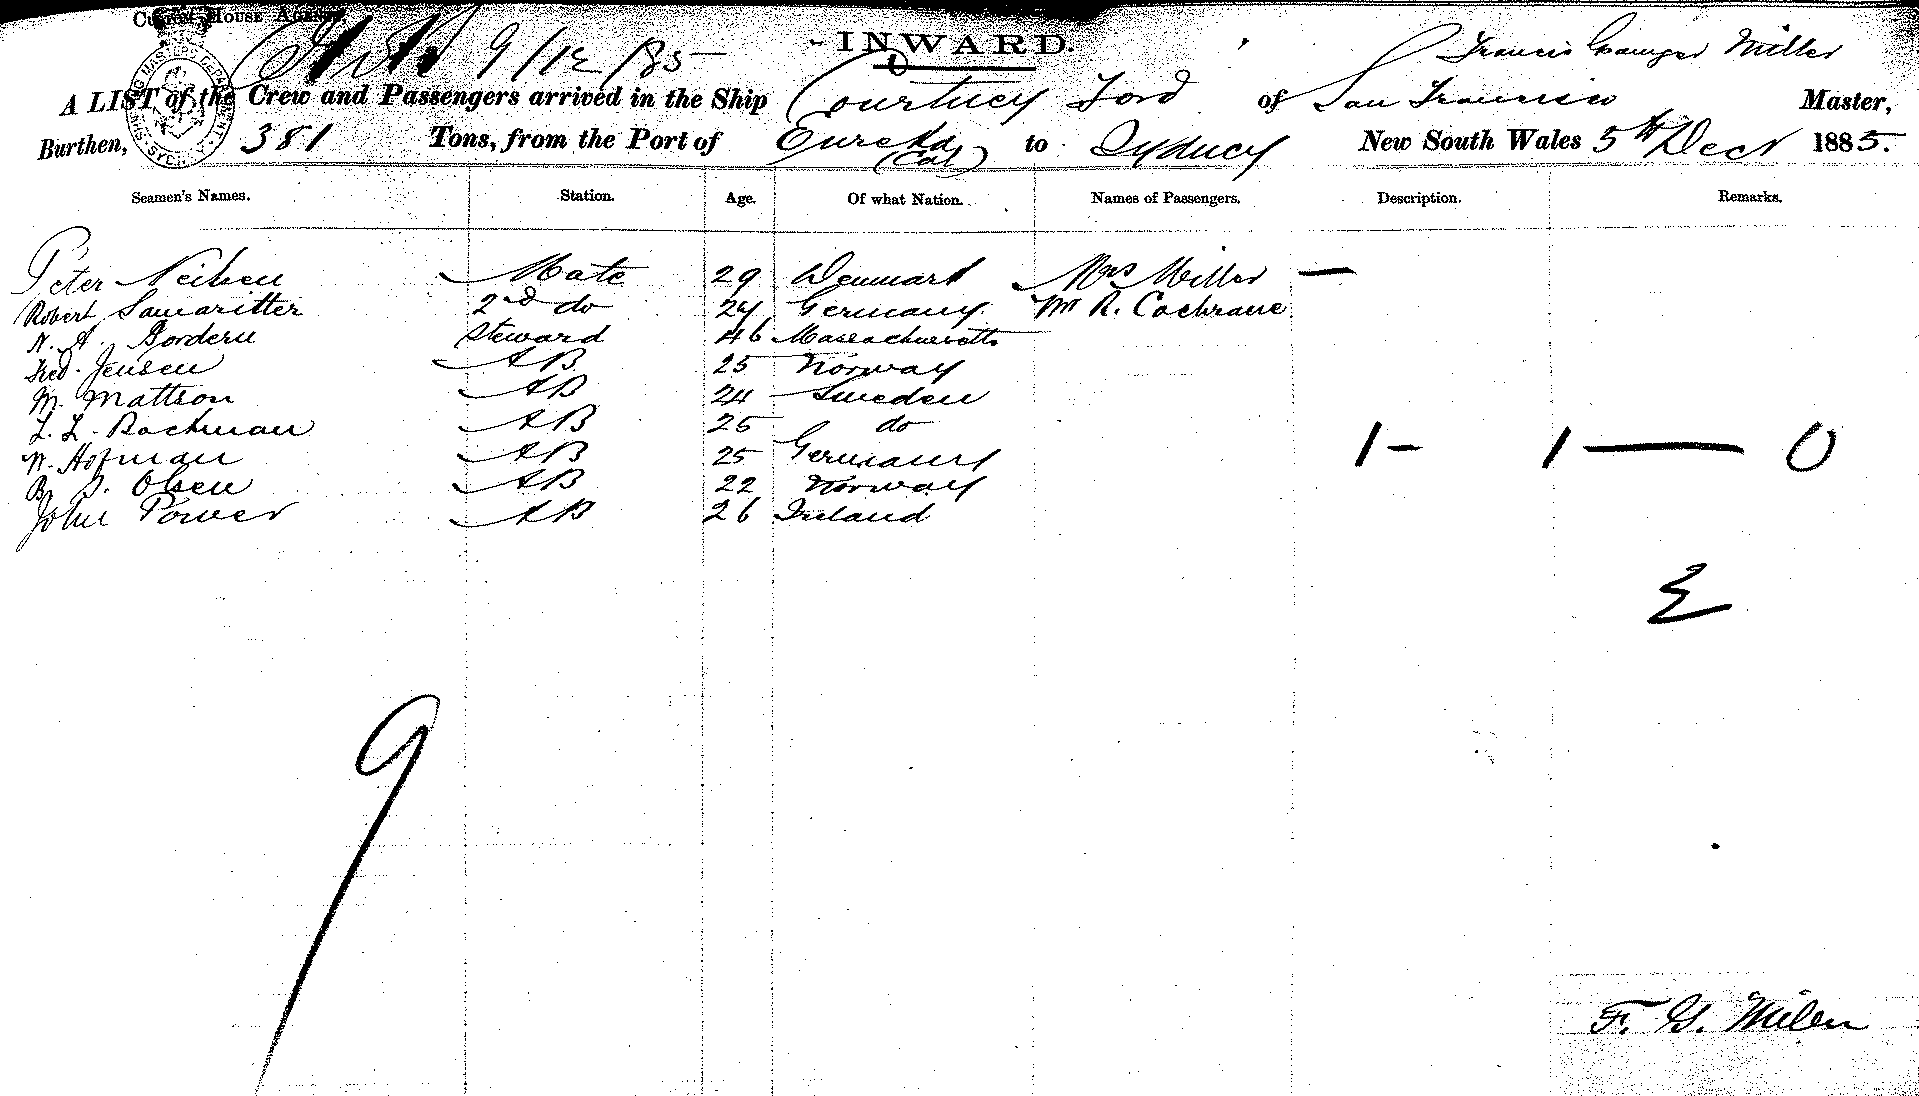 Custom House Agent.
9/12/85
INWARD.
Francis Grainger Miller
A LIST of the Crew and Passengers arrived in the Ship Courtney Ford of San Francisco Master,
Burthen, 381 Tons, from the Port of Eureka (Cal) to Sydney New South Wales 5th Decr 1885.
Seamen's Names. Station. Age. Of what Nation. Names of Passengers. Description. Remarks.
Peter Neilsen Mate 29 Denmark Mrs Miller —
Robert Samaritter 2nd do 24 Germany Mr R. Cochrane
N. A. Bordern Steward 46 Massachusetts
Fred. Jensen AB 25 Norway
M. Mattson AB 24 Sweden
L. L. Bachman AB 25 do
W. Hofman AB 25 Germany
B. S. Olsen AB 22 Norway
John Power AB 26 Ireland
1 - 1 — 0
9
F. G. Miller